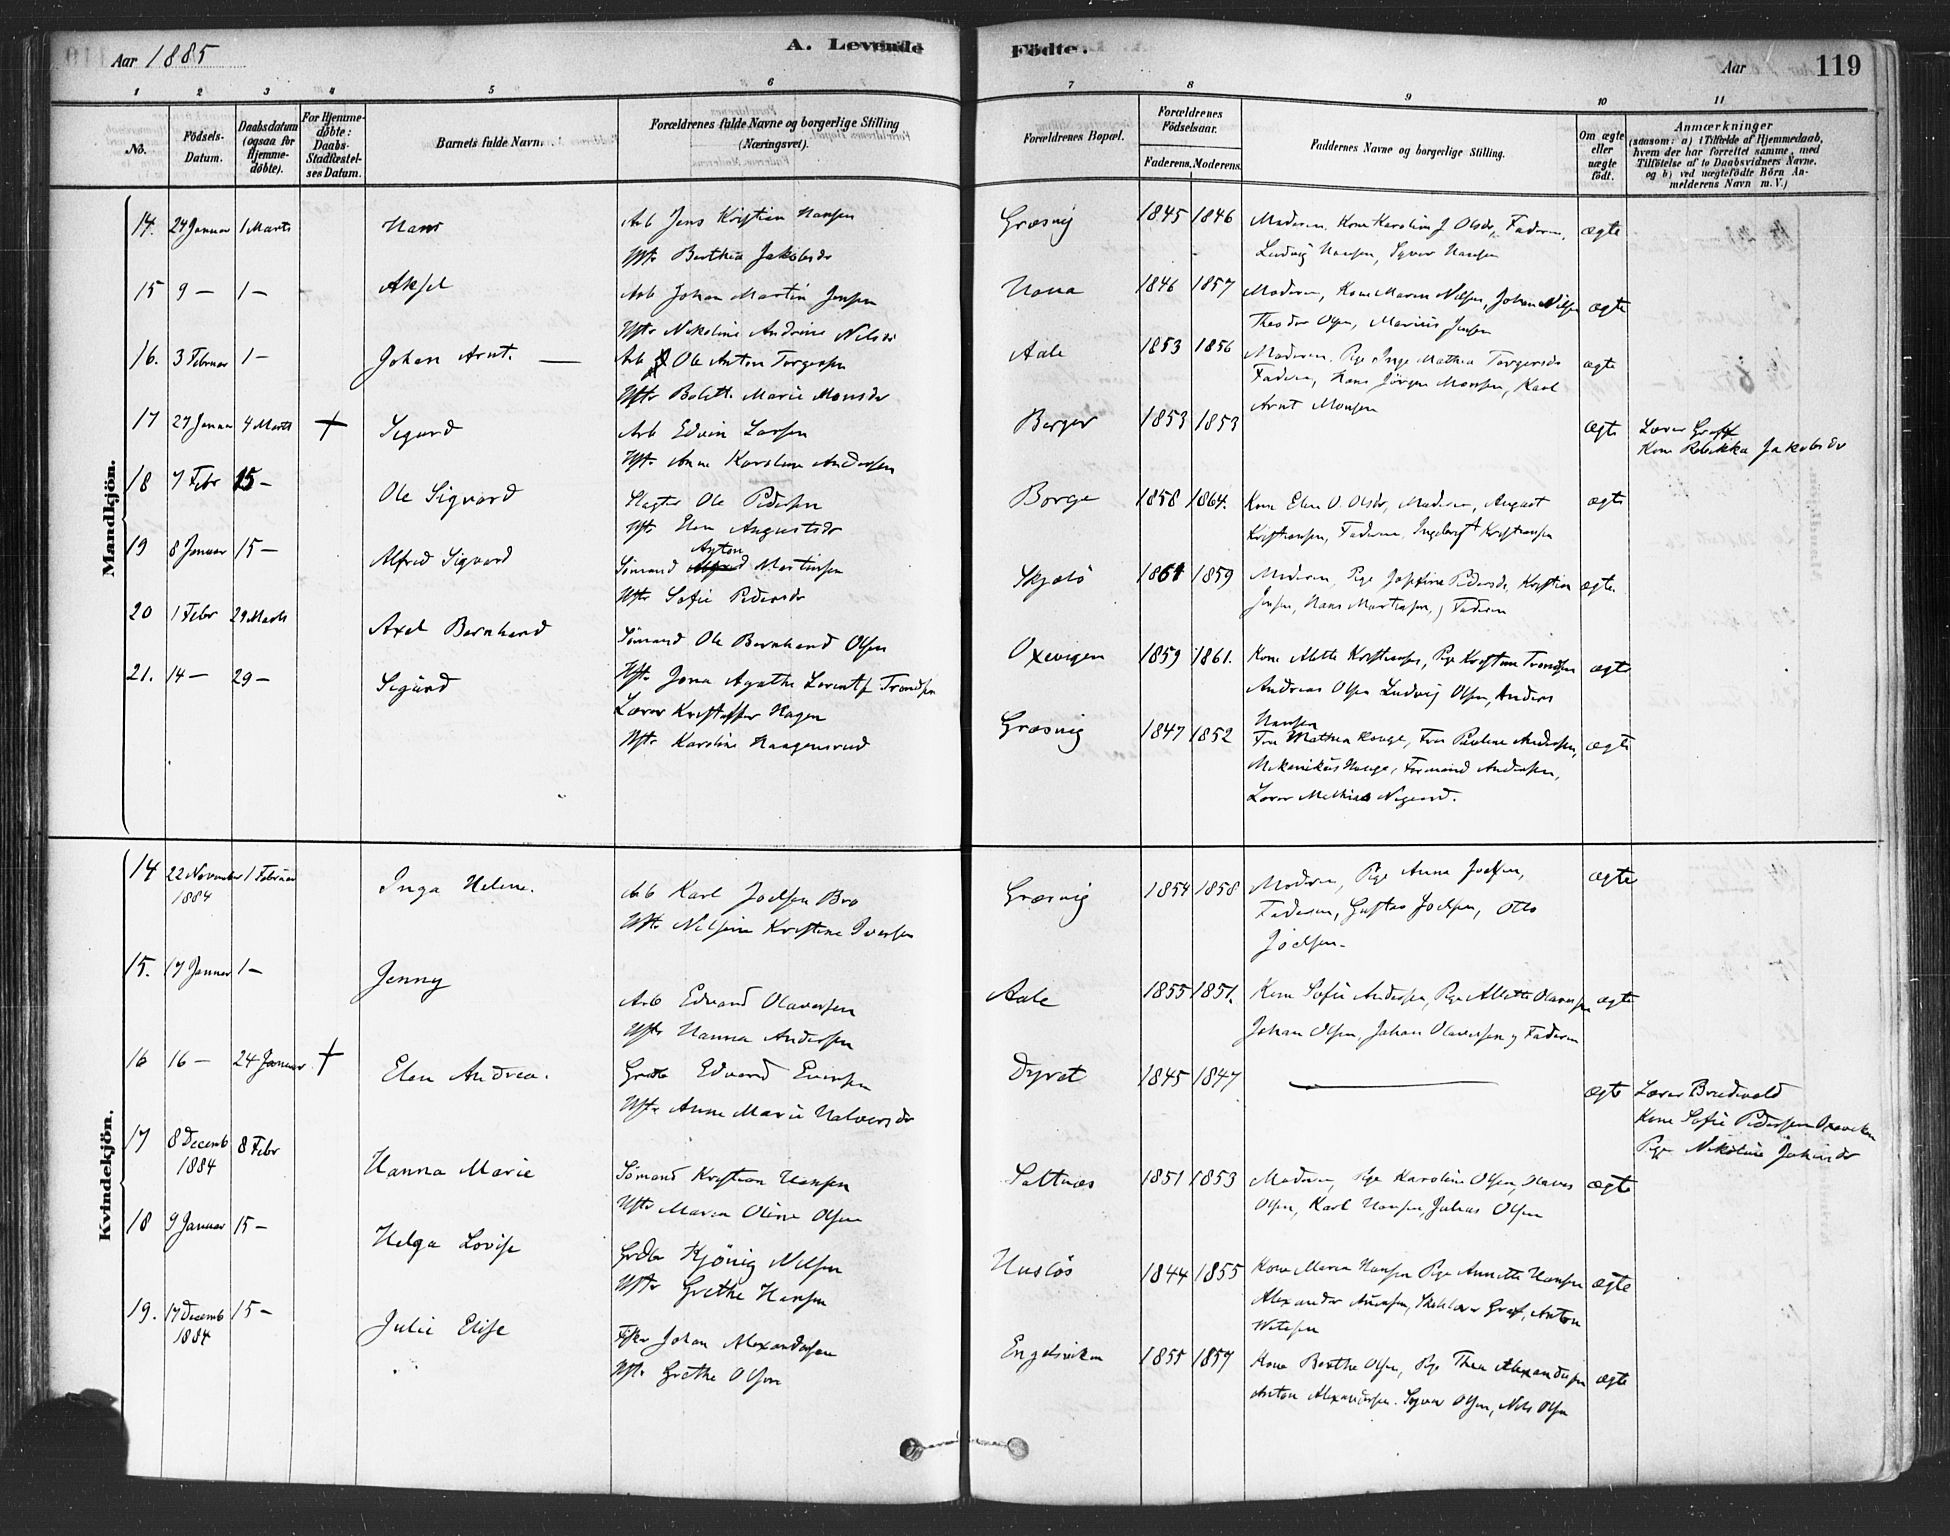 Aar 1885
A. Levende Födte.
Aar 119
1 2 3 4 5 6 7 8 9 10 11
No.
Födsels-Datum.
Daabsdatum (ogsaa for Hjemme-døbte).
For Hjemme-døbte: Daabs-Stadfæstel-ses Datum.
Barnets fulde Navn.
Forældrenes fulde Navne og borgerlige Stilling (Næringsvei).
Forældrenes Bopæl.
Forældrenes Födselsaar.
Faderens. Moderens.
Faddernes Navne og borgerlige Stilling.
Om ægte eller uægte født.
Anmærkninger
(saasom: a) i Tilfælde af Hjemmedaab, hvem der har forrettet samme, med Tilföielse af to Daabsvidners Navne, og b) ved uægtefödte Börn An-melderens Navn m. V.)
Mandkjön.
14. 24 Januar 1 Marts Hans
Arb Jens Kristian Hansen
Hstr Berthea Jakobsdr
Græsvig 1845 1846
Moderen, Kone Karoline J Olsdr, Faderen,
Ludvig Hansen, Syver Hansen
ægte
15 9 — 1 — Aksel
Arb Johan Martin Jensen
Hstr Nikoline Andrine Nilsdr
Hona 1846 1857
Moderen, Kone Maren Nilsen, Johan Nilsen
Theodor Olsen, Marius Jensen
ægte
16. 3 Februar 1 — Johan Arnt. —
Arb Ole Anton Torgersen
Hstr Bolette Marie Monsdr
Aale 1853 1856
Moderen, Pige Inge Mathea Torgersdr
Faderen, Hans Jörgen Monsen, Karl
Arnt Monsen
ægte
17 27 Januar 4 Marts + Sigurd
Arb Edvin Larsen
Hstr Anne Karoline Andersen
Berger 1853 1853
ægte
Lærer Graff
Kone Rebekka Jakobsdr
18 7 Febr 15 — Ole Sigvard
Slagter Ole Pedersen
Hstr Elen Augustsdr
Borge 1858 1864.
Kone Elen O. Olsdr, Moderen, August
Kristiansen, Faderen, Ingebrigt Kristiansen
ægte
19 8 Januar 15 — Alfred Sigvard
Anton
Sømand Martinsen
Hstr Sofie Pedersdr
Skjælö 1861 1859
Moderen, Pige Josefine Pedersdr, Kristian
Jensen, Hans Martinsen, Faderen
ægte
20 1 Febr 29 Marts Axel Bernhard
Sømand Ole Bernhard Olsen
Hstr Jona Agathe Lorentse Trondsen
Oxevigen 1859 1861.
Kone Alette Kristiansen, Pige Kristine Trondsen
Andreas Olsen Ludvig Olsen, Anders
Hansen
ægte
21. 14 — 29 — Sigurd
Lærer Kristoffer Hagen
Hstr Karoline Haagensrud
Græsvig 1847 1852
Fru Mathea Hauge, Fru Pauline Andersen,
Mekanikus Hauge, Formand Andersen,
Lærer Mathias Nygaard.
ægte
Kvindekjön.
14 22 November 1884 1 Februar Inga Helene.
Arb Karl Joelsen Bro
Hstr Nilsine Kristine Iversen
Græsvig 1854 1858
Moderen, Pige Anna Joelsen,
Faderen, Gustav Joelsen, Otto
Joelsen.
ægte
15. 17 Januar 1 — Jenny
Arb Edvard Olavesen
Hstr Hanna Andersen
Aale 1855 1851.
Kone Sofie Andersen, Pige Alette Olavesen
Johan Olsen, Johan Olavesen og Faderen
ægte
16 16 — 24 Januar + Elen Andrea.
Grdbr Edvard Eversen
Hstr Anne Marie Halvorsdr
Dyret 1845 1847 —
ægte
Lærer Bredvold
Kone Sofie Pedersen Oxeviken
Pige Nikoline Johnsdr
17 8 Decemb 1884 8 Febr Hanna Marie
Sømand Kristian Hansen
Hstr Maren Oline Olsen
Saltnæs 1851 1853
Moderen, Pige Karoline Olsen, Hans
Olsen, Karl Hansen, Julius Olsen
ægte
18 9 Januar 15 — Helga Lovise
Grdbr Kjönig Nilsen
Hstr Grethe Hansen
Huslös 1844 1855
Kone Maren Hansen Pige Annette Hansen
Alexander Aversen, Skolelærer Graf, Anton
Nilsen
ægte
19. 17 Decemb 1884 15 — Julie Elise
Fisker Johan Alexandersen
Hstr Grethe Olsen
Engelsviken 1855 1857
Kone Berthe Olsen, Pige Thea Alexandersen
Anton Alexandersen. Syver Olsen, Nils Olsen
ægte